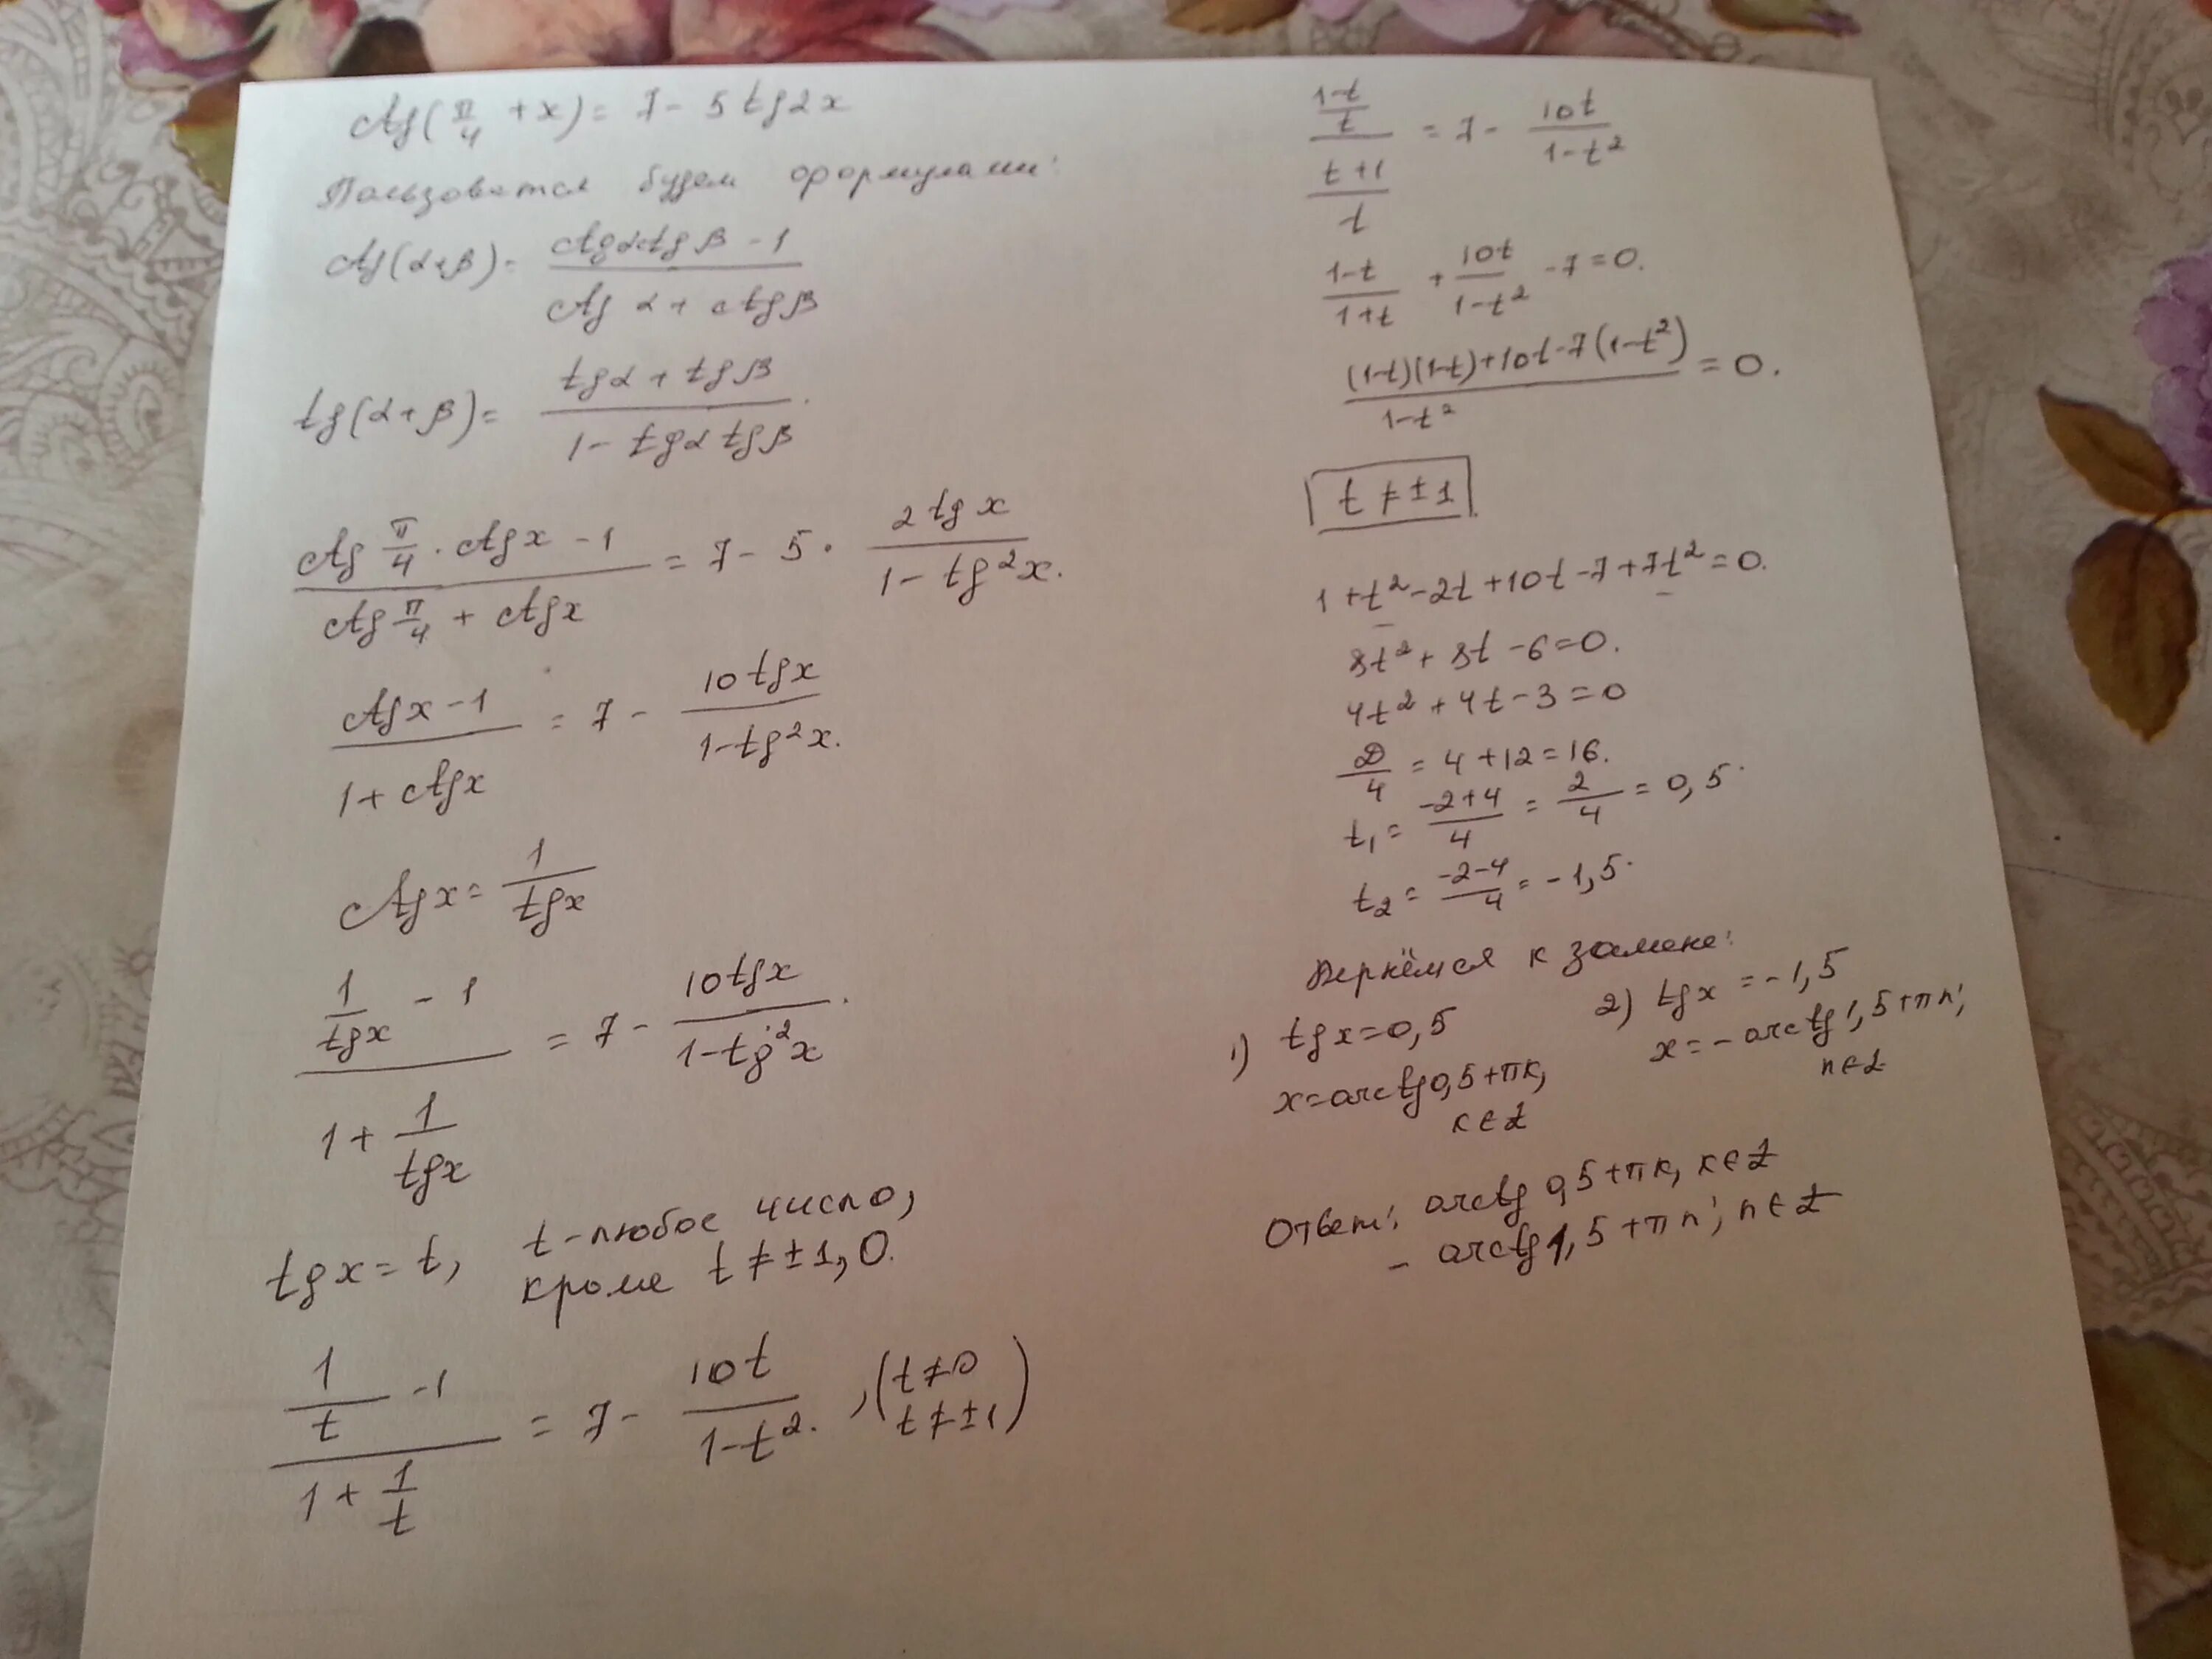 ctg(π/4 + x) = 7 - 5 tg2x
Пользоватся будем формулами:
ctg(α+β) = (ctgα ctgβ - 1)/(ctg α + ctgβ)
tg(α+β) = (tgα + tgβ)/(1 - tgα tgβ).
(ctg π/4 · ctgx - 1)/(ctg π/4 + ctgx) = 7 - 5 · (2 tg x)/(1 - tg²x).
(ctgx - 1)/(1 + ctgx) = 7 - (10 tgx)/(1 - tg²x).
ctgx = 1/tgx
(1/tgx - 1)/(1 + 1/tgx) = 7 - (10tgx)/(1 - tg²x).
tgx = t, t - любое число,
кроме t ≠ ±1, 0.
(1/t - 1)/(1 + 1/t) = 7 - 10t/(1 - t²)., (t ≠ 0 t ≠ ±1)
((1-t)/t)/((t+1)/t) = 7 - 10t/(1-t²)
(1-t)/(1+t) + 10t/(1-t²) - 7 = 0.
((1-t)(1-t)+10t-7(1-t²))/(1-t²) = 0.
t ≠ ±1
1 + t² - 2t + 10t - 7 + 7t² = 0.
8t² + 8t - 6 = 0.
4t² + 4t - 3 = 0
D/4 = 4 + 12 = 16.
t₁ = (-2+4)/4 = 2/4 = 0,5.
t₂ = (-2-4)/4 = -1,5.
Вернёмся к замене:
1) tgx = 0,5
x = arctg0,5 + πк,
к ∈ Z
2) tgx = -1,5
x = - arctg1,5 + πn;
n ∈ Z
Ответ: arctg 0,5 + πк, к ∈ Z
- arctg1,5 + πn; n ∈ Z